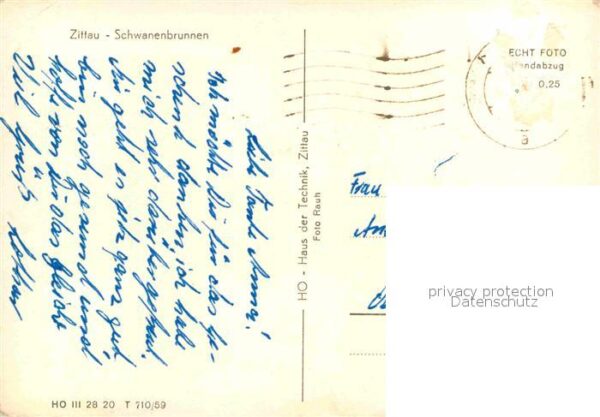 Zittau - Schwanenbrunnen
Liebe Tante Anna!
Ich möchte Dir für das Ge-
schenk danken, ich habe
mich sehr darüber gefreut.
Mir geht es jetzt ganz gut
bin noch gesund und
hoffe von Dir das gleiche
Viel Grüße Lothar
HO - Haus der Technik, Zittau
Foto Rauh
ECHT FOTO
Handabzug
0,25
Frau
privacy protection
Datenschutz
HO III 28 20 T 710/59